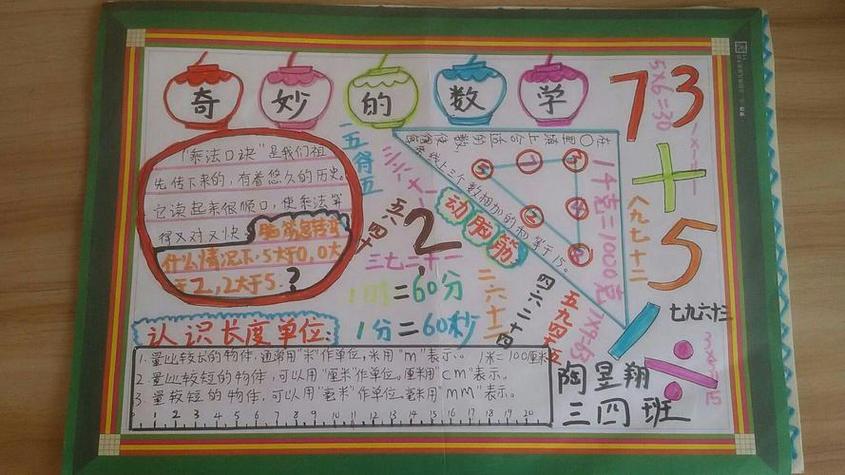 奇妙的数学
"乘法口诀"是我们祖
先传下来的,有着悠久的历史。
它读起来很顺口,使乘法算
得又对又快。脑筋急转弯
什么情况下.5大于0,0大
于2,2大于5.?
一五得五
三六十八
五八四十
三七二十一
2
?
1时=60分
1分=60秒
二六十二
四六二十四
五九四十五
动脑筋
在○里填上合适的数,
使得每条线上三个数相加的和等于15。
1千克=1000克
7×9=63
八九七十二
73
5×6=30
+
5
七九六十三
÷
3×5=15
认识长度单位:
1.量比较长的物体,通常用"米"作单位,米用"m"表示。 1米=100厘米
2.量比较短的物体,可以用"厘米"作单位。厘米用"cm"表示。
3.量较短的物体,可以用"毫米"作单位。毫米用"mm"表示。
1 2 3 4 5 6 7 8 9 10 11 12 13 14 15 16 17 18 19 20
陶昱翔
三四班